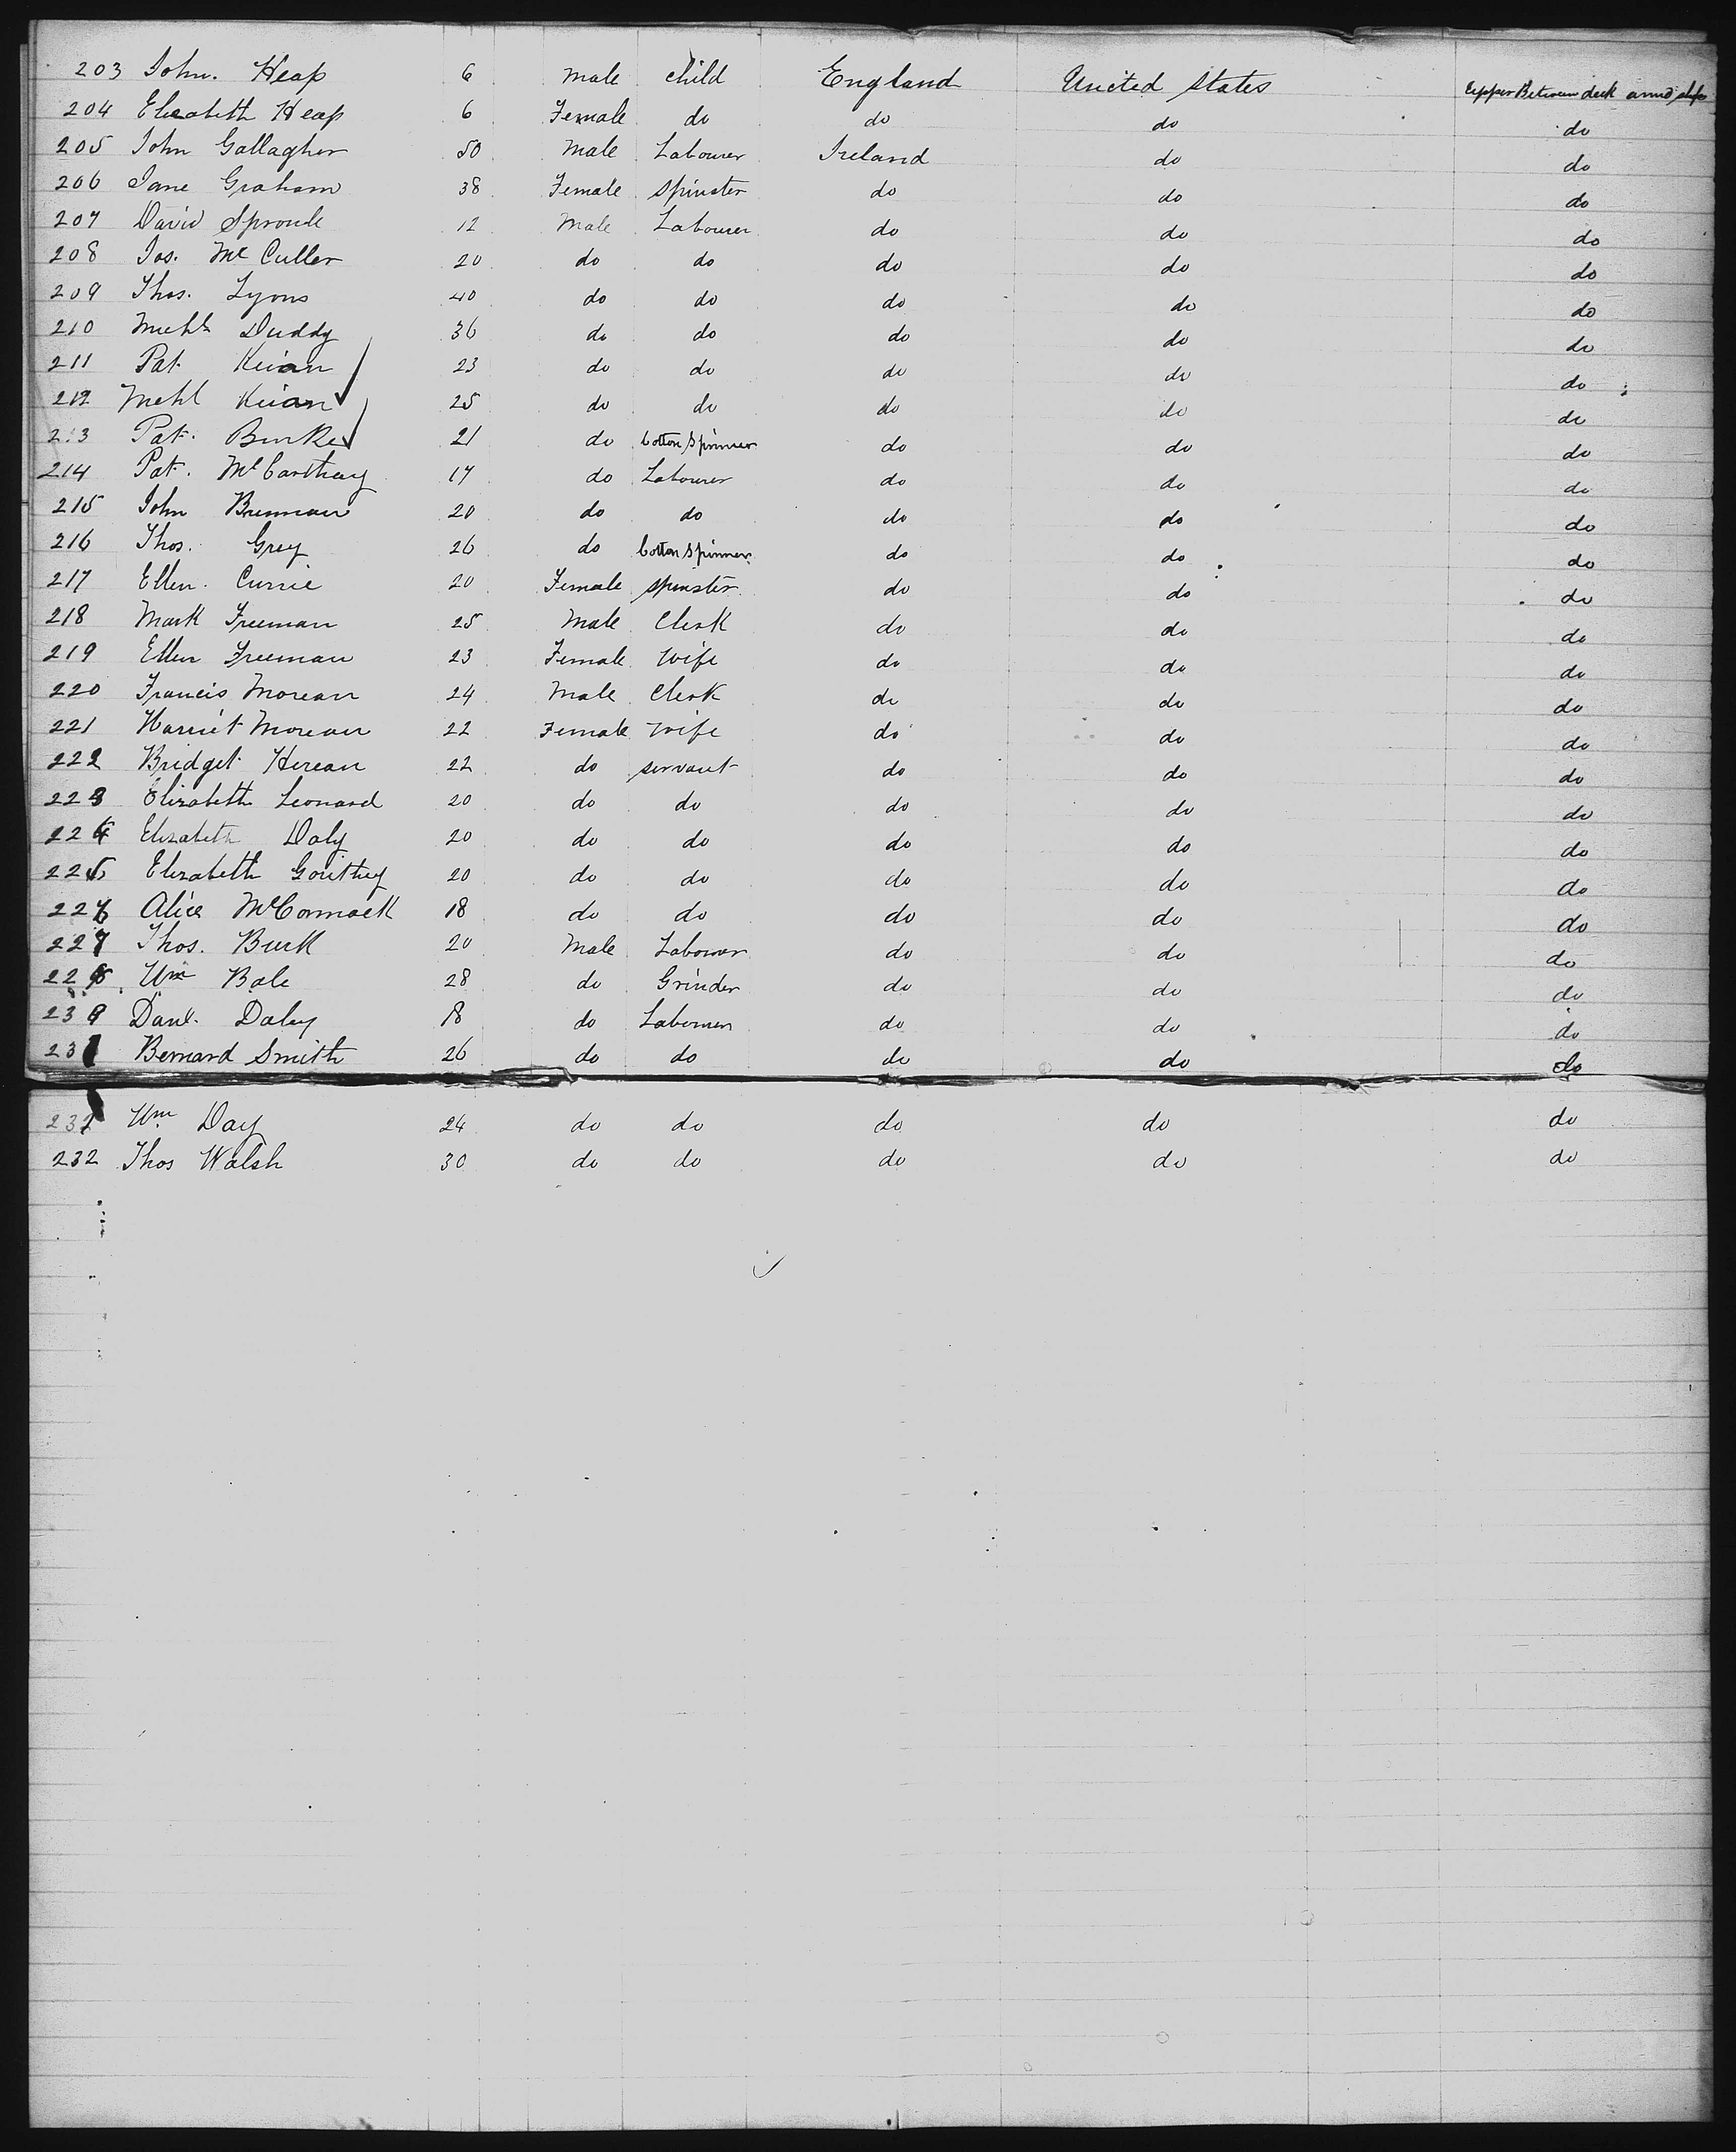 203 John. Heap 6 Male child England United States Upper Between deck amid ships
204 Elizabeth Heap 6 Female do do do do
205 John Gallagher 50 Male Labourer Ireland do do
206 Jane Graham 38 Female Spinster do do do
207 David Sproule 12 Male Labourer do do do
208 Jos. Mc Culler 20 do do do do do
209 Thos. Lyons 40 do do do do do
210 Michl Duddy 36 do do do do do
211 Pat. Kivan 23 do do do do do
212 Mchl Kivan 25 do do do do do
213 Pat. Burke 21 do Cotton Spinner do do do
214 Pat. McCarthay 17 do Labourer do do do
215 John Brennan 20 do do do do do
216 Thos. Grey 26 do Cotton Spinner do do do
217 Ellen. Currie 20 Female Spinster do do do
218 Mark Freeman 25 Male Clerk do do do
219 Ellen Freeman 23 Female Wife do do do
220 Francis Morean 24 Male Clerk do do do
221 Harriet Morean 22 Female Wife do do do
222 Bridget Herean 22 do servant do do do
223 Elizabeth Leonard 20 do do do do do
224 Elizabeth Daly 20 do do do do do
225 Elizabeth 20 do do do do do
226 Alice McCormack 18 do do do do do
227 Thos. Burk 20 Male Labourer do do do
228 Wm Bale 28 do Grinder do do do
Danl. Daley 18 do Labourer do do do
Bernard Smith 26 do do do do do
Wm Day 24 do do do do do
232 Thos Walsh 30 do do do do do